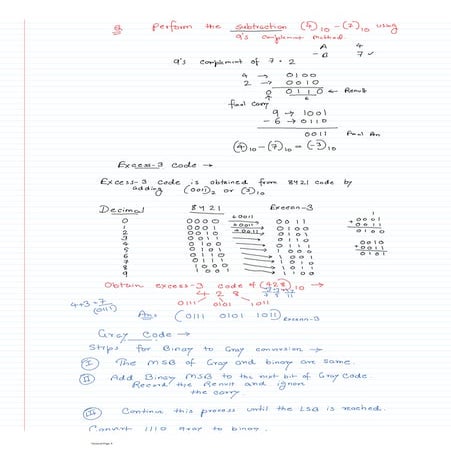 Q Perform the subtraction (4)10 - (7)10 using
9's complement method.
A 4
- B 7 ✓
9's complement of 7 = 2
4 → 0100
2 → 0010
0 0110 ← Result
final carry 6
9 → 1001
- 6 → 0110
0011 Final An
(4)10 - (7)10 = (-3)10
Excess-3 code →
Excess-3 code is obtained from 8421 code by
adding (0011)2 or (3)10
Decimal 8421 Excess-3
0 0000 +0011 0011
1 0001 +0011 0100
2 0010 +0011 0101
3 0011 0110
4 0100 0111
5 0101 1000
6 0110 1001
7 0111 1010
8 1000 1011
9 1001 1100
0001
+0011
0100
0010
+0011
0101
Obtain excess-3 code of (428)10 →
4 2 8
4+3=7
(0111)
0111 0101 1011
Ans (0111 0101 1011) Excess-3
Gray Code →
Steps for Binary to Gray conversion →
I The MSB of Gray and binary are same.
II Add Binary MSB to the next bit of Gray Code.
Record the Result and ignore
the carry.
III Continue this process until the LSB is reached.
Convert 1110 gray to binary.